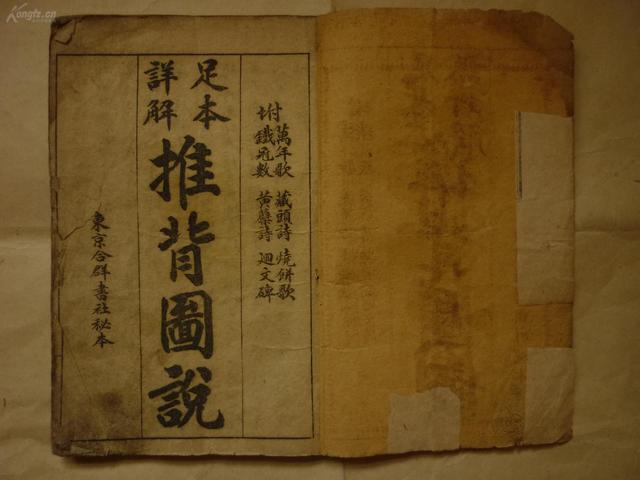 Kongfz.cn
坿
萬年歌 藏頭詩 燒餅歌
鐵冠數 黃蘗詩 迴文碑
足本
詳解
推背圖說
東京合羣書社秘本